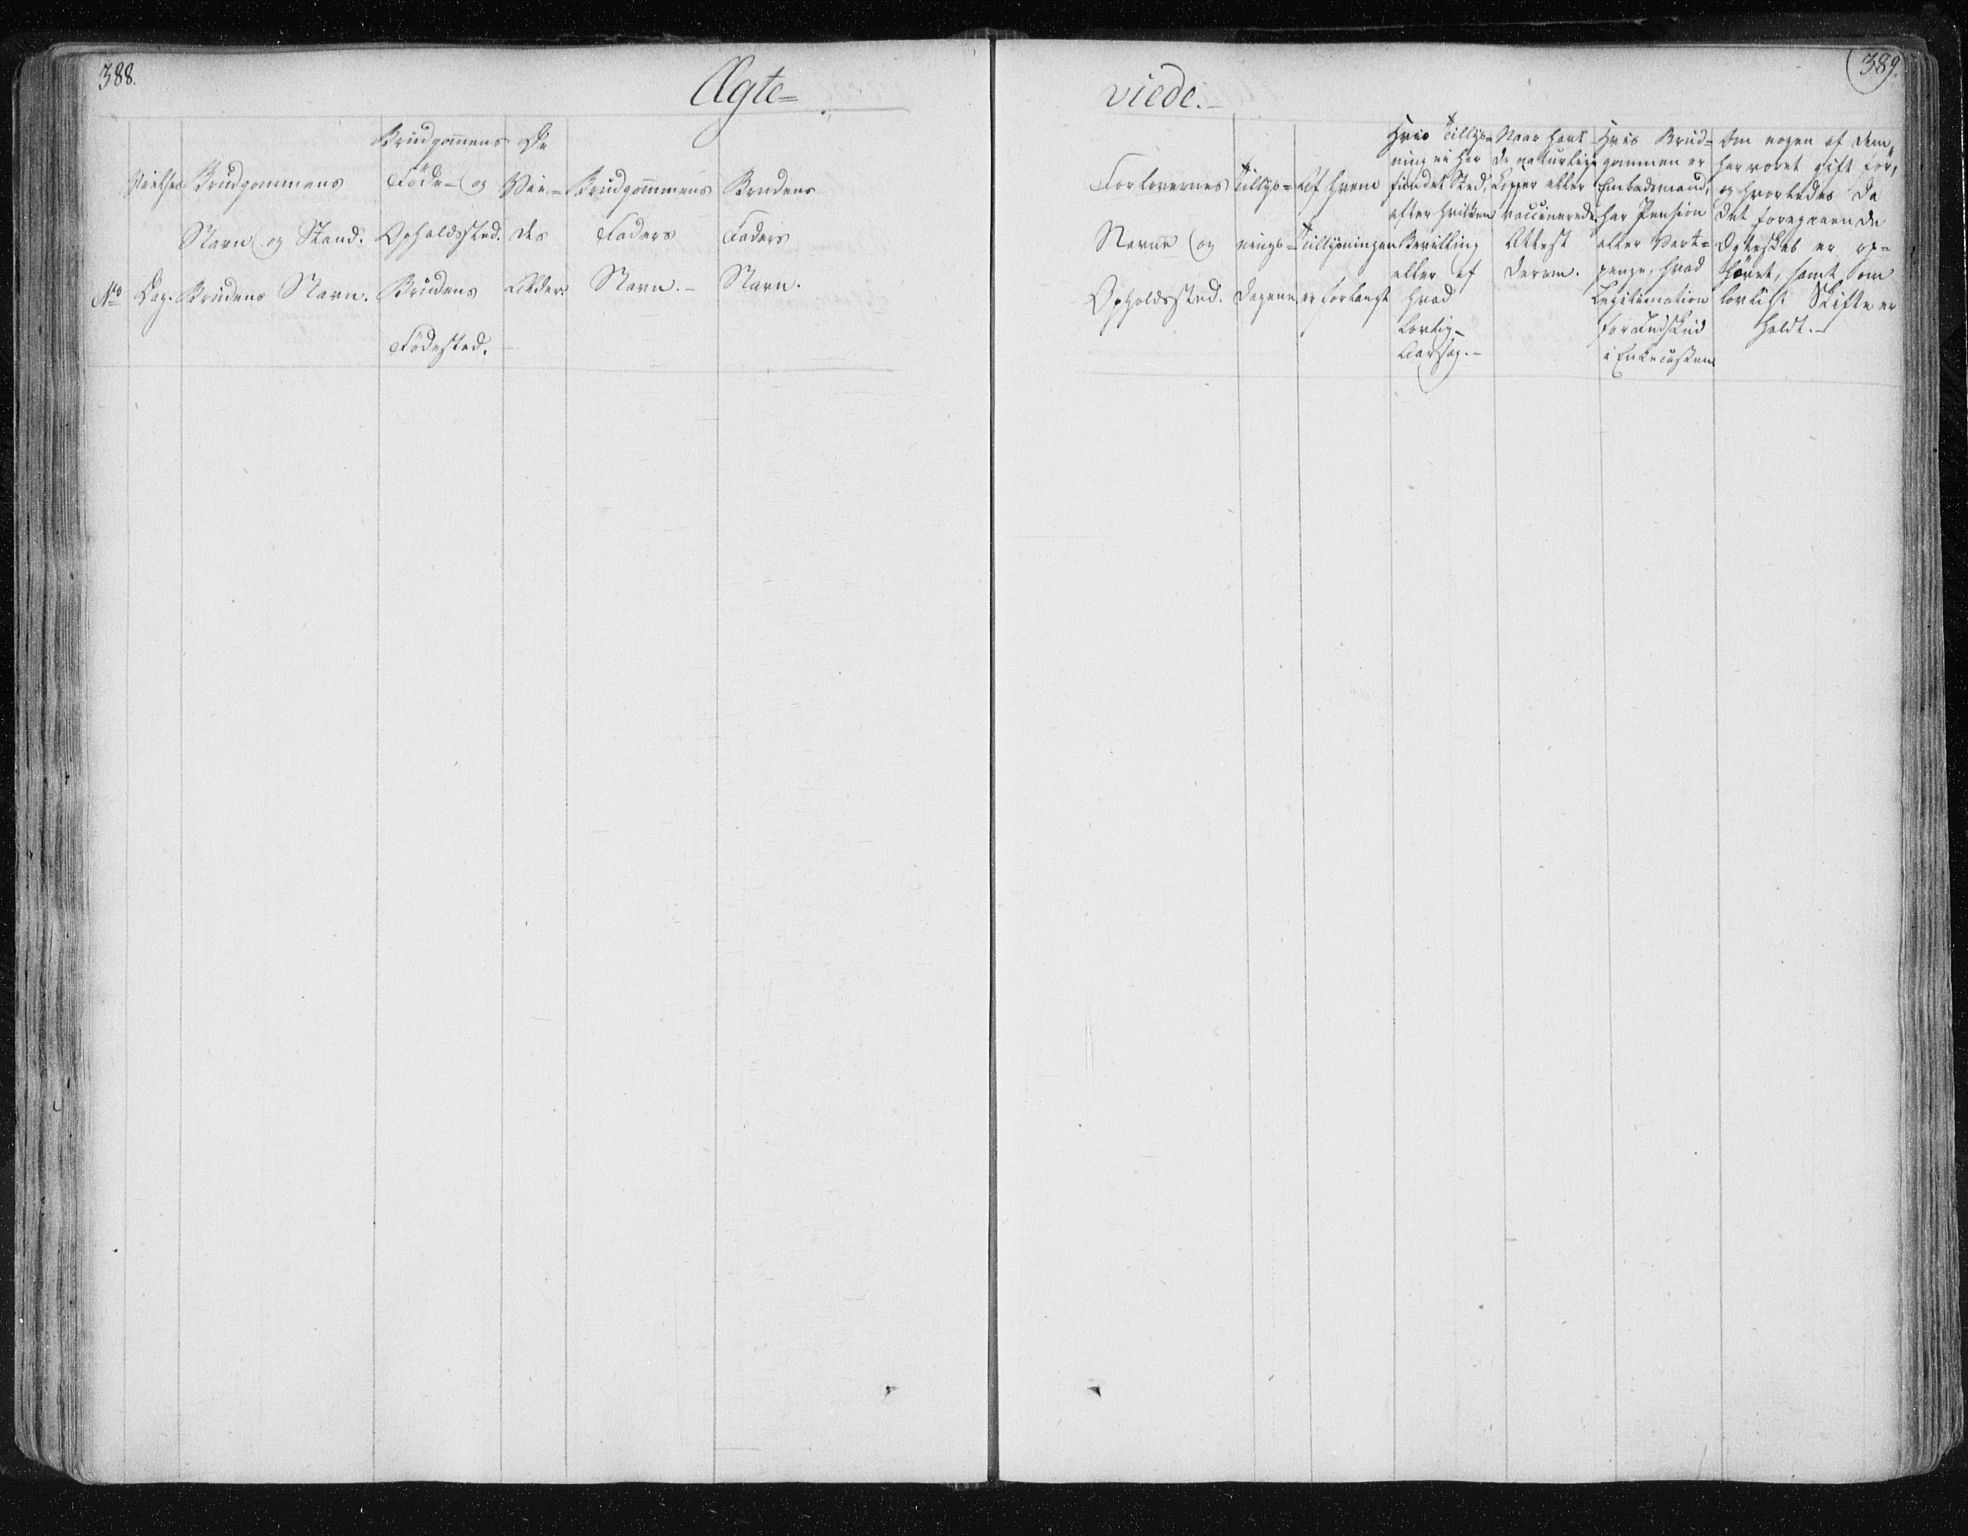 388.
Ægte=
No
Vielses
Dag.
Brudgommens
Navn og Stand.
Brudens Navn.
Brudgom̅ens
Föde- og
Opholdssted.
Brudens
Födested.
De
Vie=
des
Alder.
Brudgom̅mens
Faders
Navn.-
Brudens
Faders
Navn.
389.
viede.-
Forlovernes
Navne og
Opholdssted.
Tillys=
nings=
Dagene
Af hvem
Tillysningen
er forlangt
Hvis Tillys=
ning ei har
fundet Sted,
efter hvilken
Bevilling
eller af
hvad
Lovlig
Aarsag.-
Naar havt
de naturlige
Kopper eller
vaccinerede
Attest
derom.
Hvis Brud=
gommen er
Embedsmand,
har Pension
eller Vart=
penge, hvad
Legitimation
for Indskud
i Enkecassen
Om nogen af dem
har været gift för,
og hvorledes da
det foregaaende
Ægteskab er op=
hövet, samt om
lovligt Skifte er
holdt.-